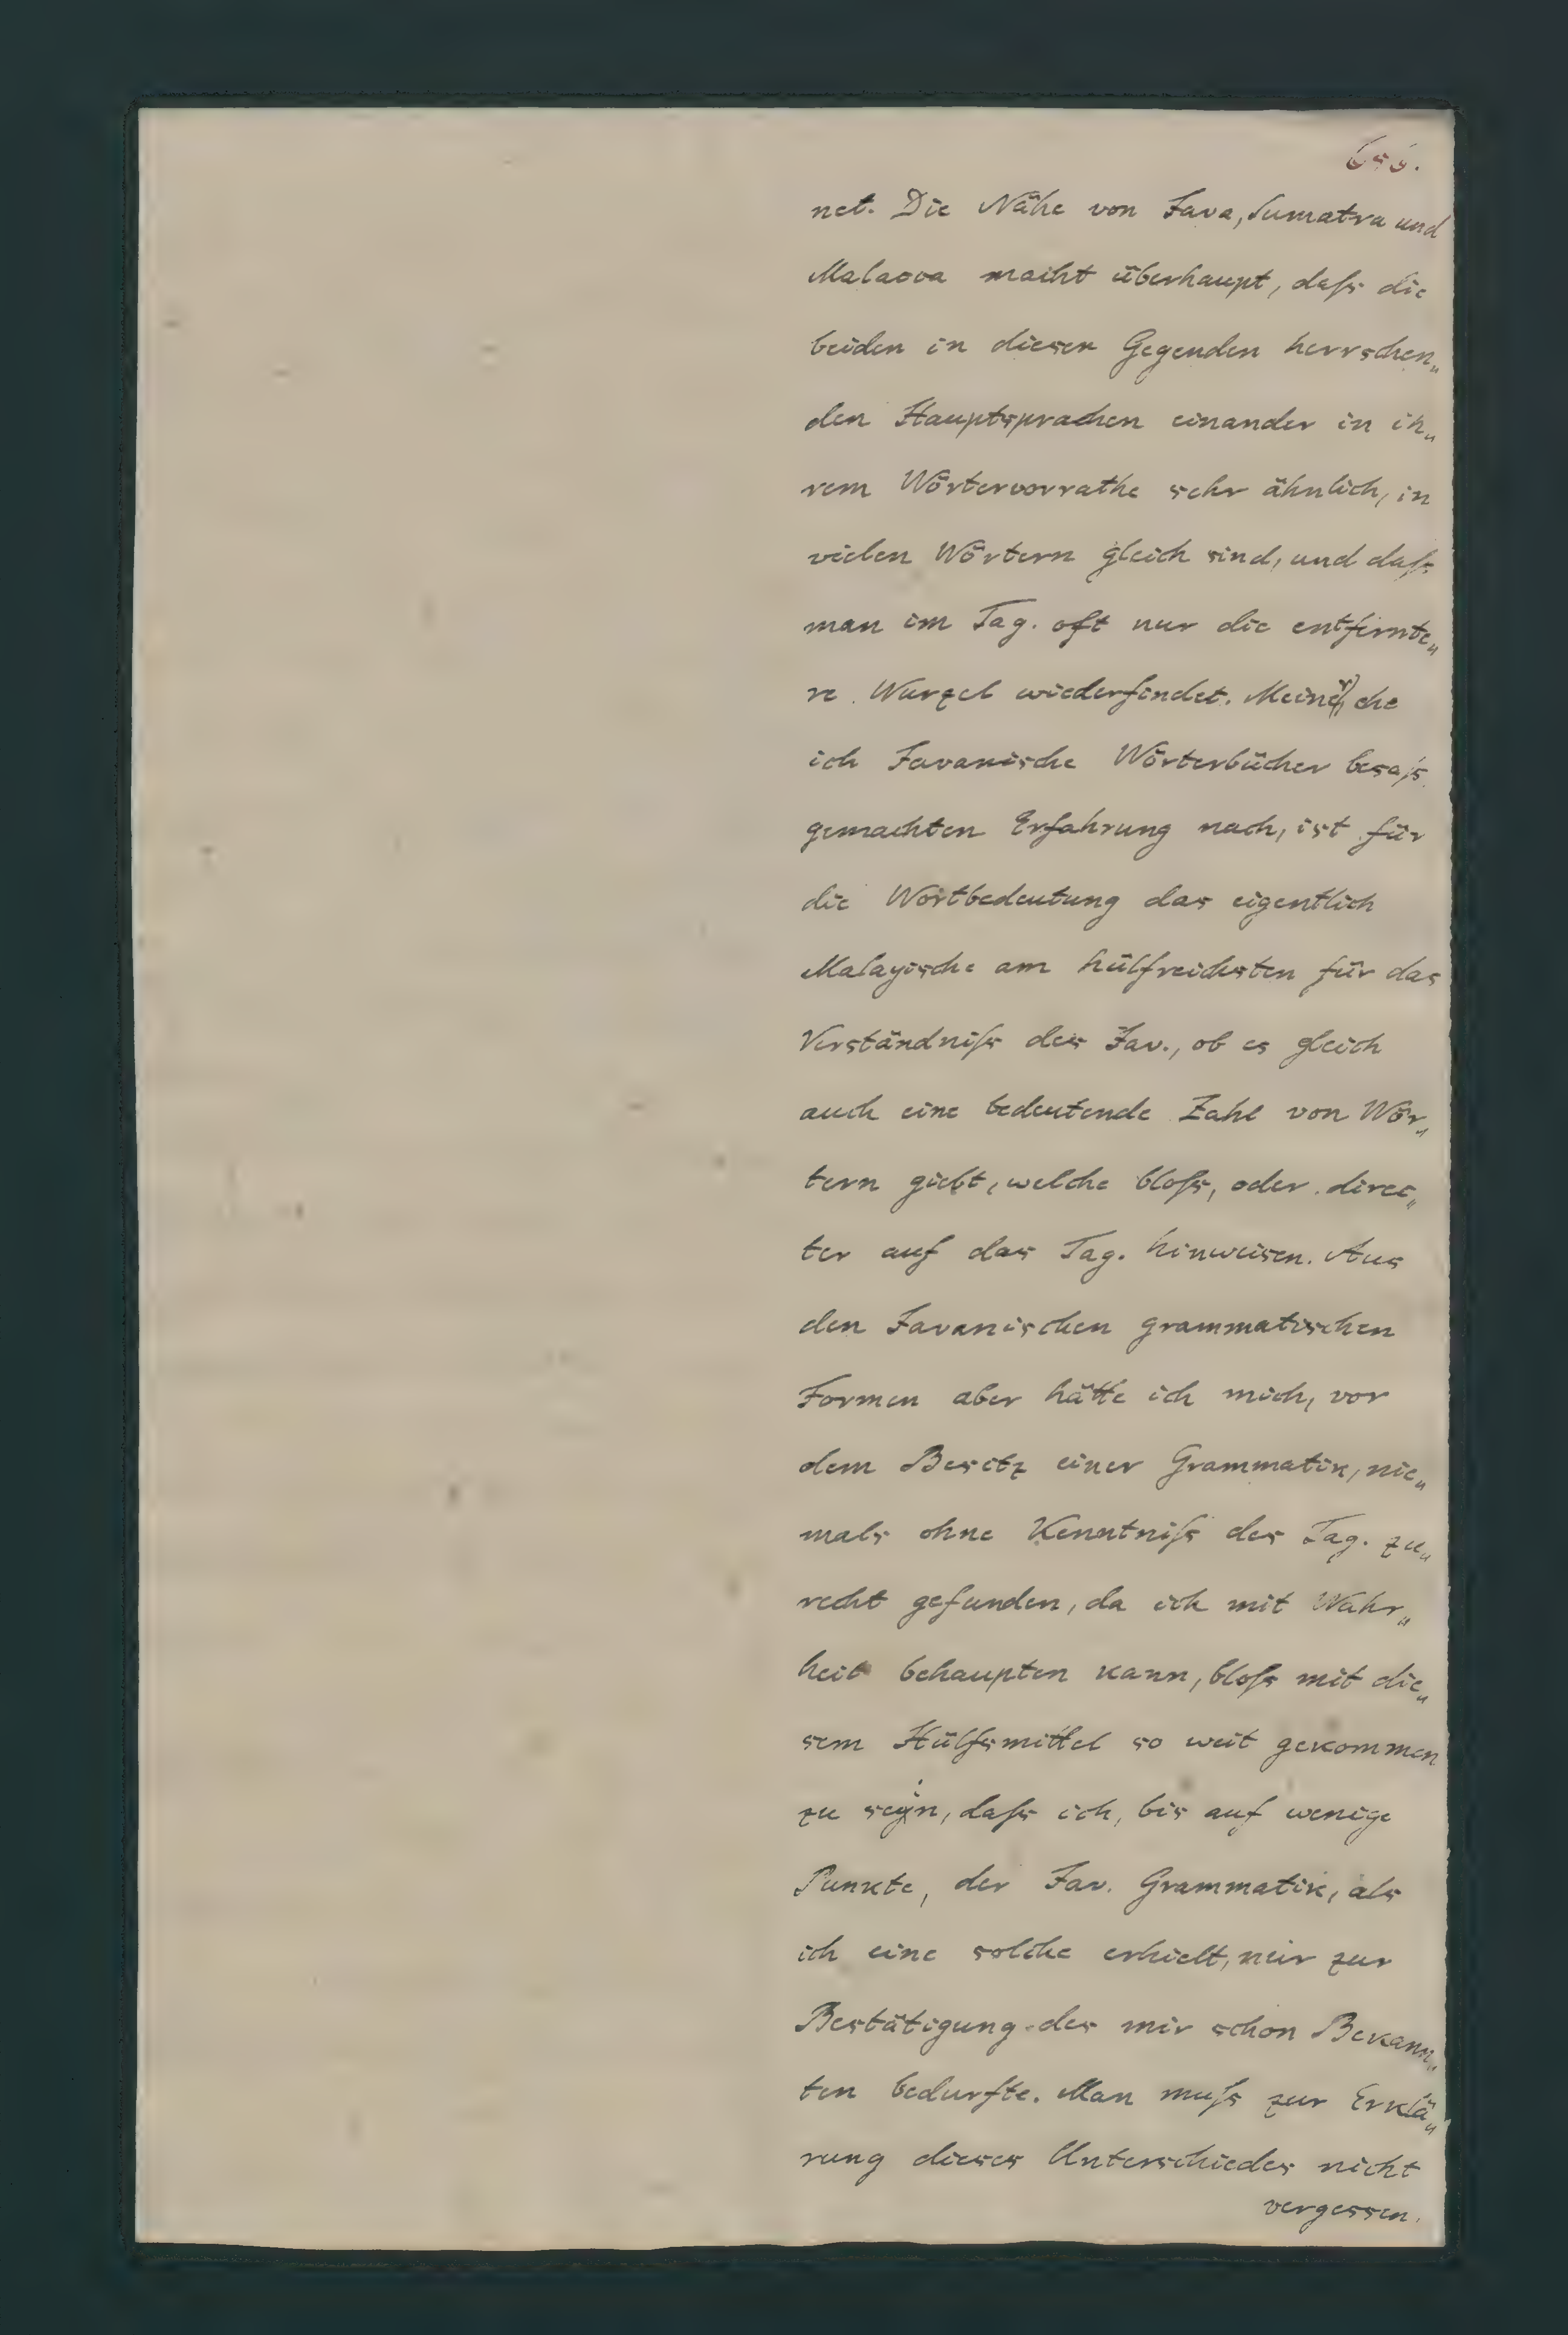 net. Die Nähe von Java, Sumatra und
Malacca macht überhaupt, daſs die
beiden in diesen Gegenden herrschen„
den Hauptsprachen einander in ih„
rem Wörtervorrathe sehr ähnlich, in
vielen Wörtern gleich sind, und daſs
man im Tag. oft nur die entfernte„
re Wurzel wiederfindet. Meiner, ehe
ich Javanische Wörterbücher besaſs
gemachten Erfahrung nach, ist für
die Wortbedeutung das eigentlich
Malayische am hülfreichsten für das
Verständniſs des Jav., ob es gleich
auch eine bedeutende Zahl von Wör„
tern giebt, welche bloſs, oder direc„
ter auf das Tag. hinweisen. Aus
den Javanischen grammatischen
Formen aber hätte ich mich, vor
dem Besitz einer Grammatik, nie„
mals ohne Kenntniſs des Tag. zu„
recht gefunden, da ich mit Wahr„
heit behaupten kann, bloſs mit die„
sem Hülfsmittel so weit gekommen
zu seyn, daſs ich, bis auf wenige
Punkte, der Jav. Grammatik, als
ich eine solche erhielt, nur zur
Bestätigung des mir schon Bekann„
ten bedurfte. Man muſs zur Erklä„
rung dieses Unterschiedes nicht
vergessen.